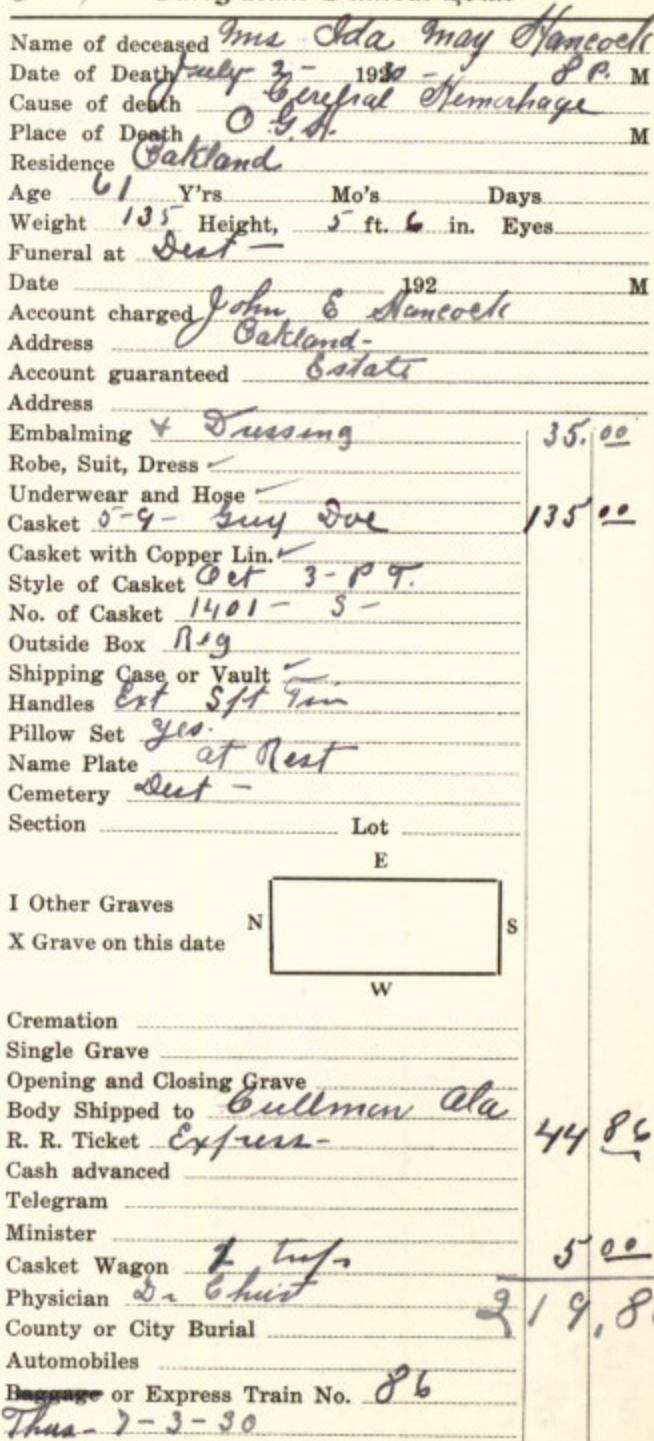 Name of deceased Mrs Ida May Hancock
Date of Death July 2- 1930 - 8 P. M
Cause of death Cerebral Hemorhage
Place of Death O G H. M
Residence Oakland
Age 61 Y'rs Mo's Days
Weight 135 Height, 5 ft. 6 in. Eyes
Funeral at Dest -
Date 192 M
Account charged John E Hancock
Address Oakland-
Account guaranteed Estate
Address
Embalming & Dressing 35.00
Robe, Suit, Dress ✓
Underwear and Hose ✓
Casket 5-9- Doe 135 00
Casket with Copper Lin. ✓
Style of Casket Oct 3- P T.
No. of Casket 1401- S-
Outside Box Reg
Shipping Case or Vault ✓
Handles Ext Sft
Pillow Set yes.
Name Plate at Rest
Cemetery Dest -
Section Lot
E
I Other Graves
N S
X Grave on this date
W
Cremation
Single Grave
Opening and Closing Grave
Body Shipped to Cullman Ala
R. R. Ticket Express- 44 86
Cash advanced
Telegram
Minister
Casket Wagon 2 trips 5 00
Physician Dr 219.8
County or City Burial
Automobiles
Baggage or Express Train No. 86
Thus- 7-3-30